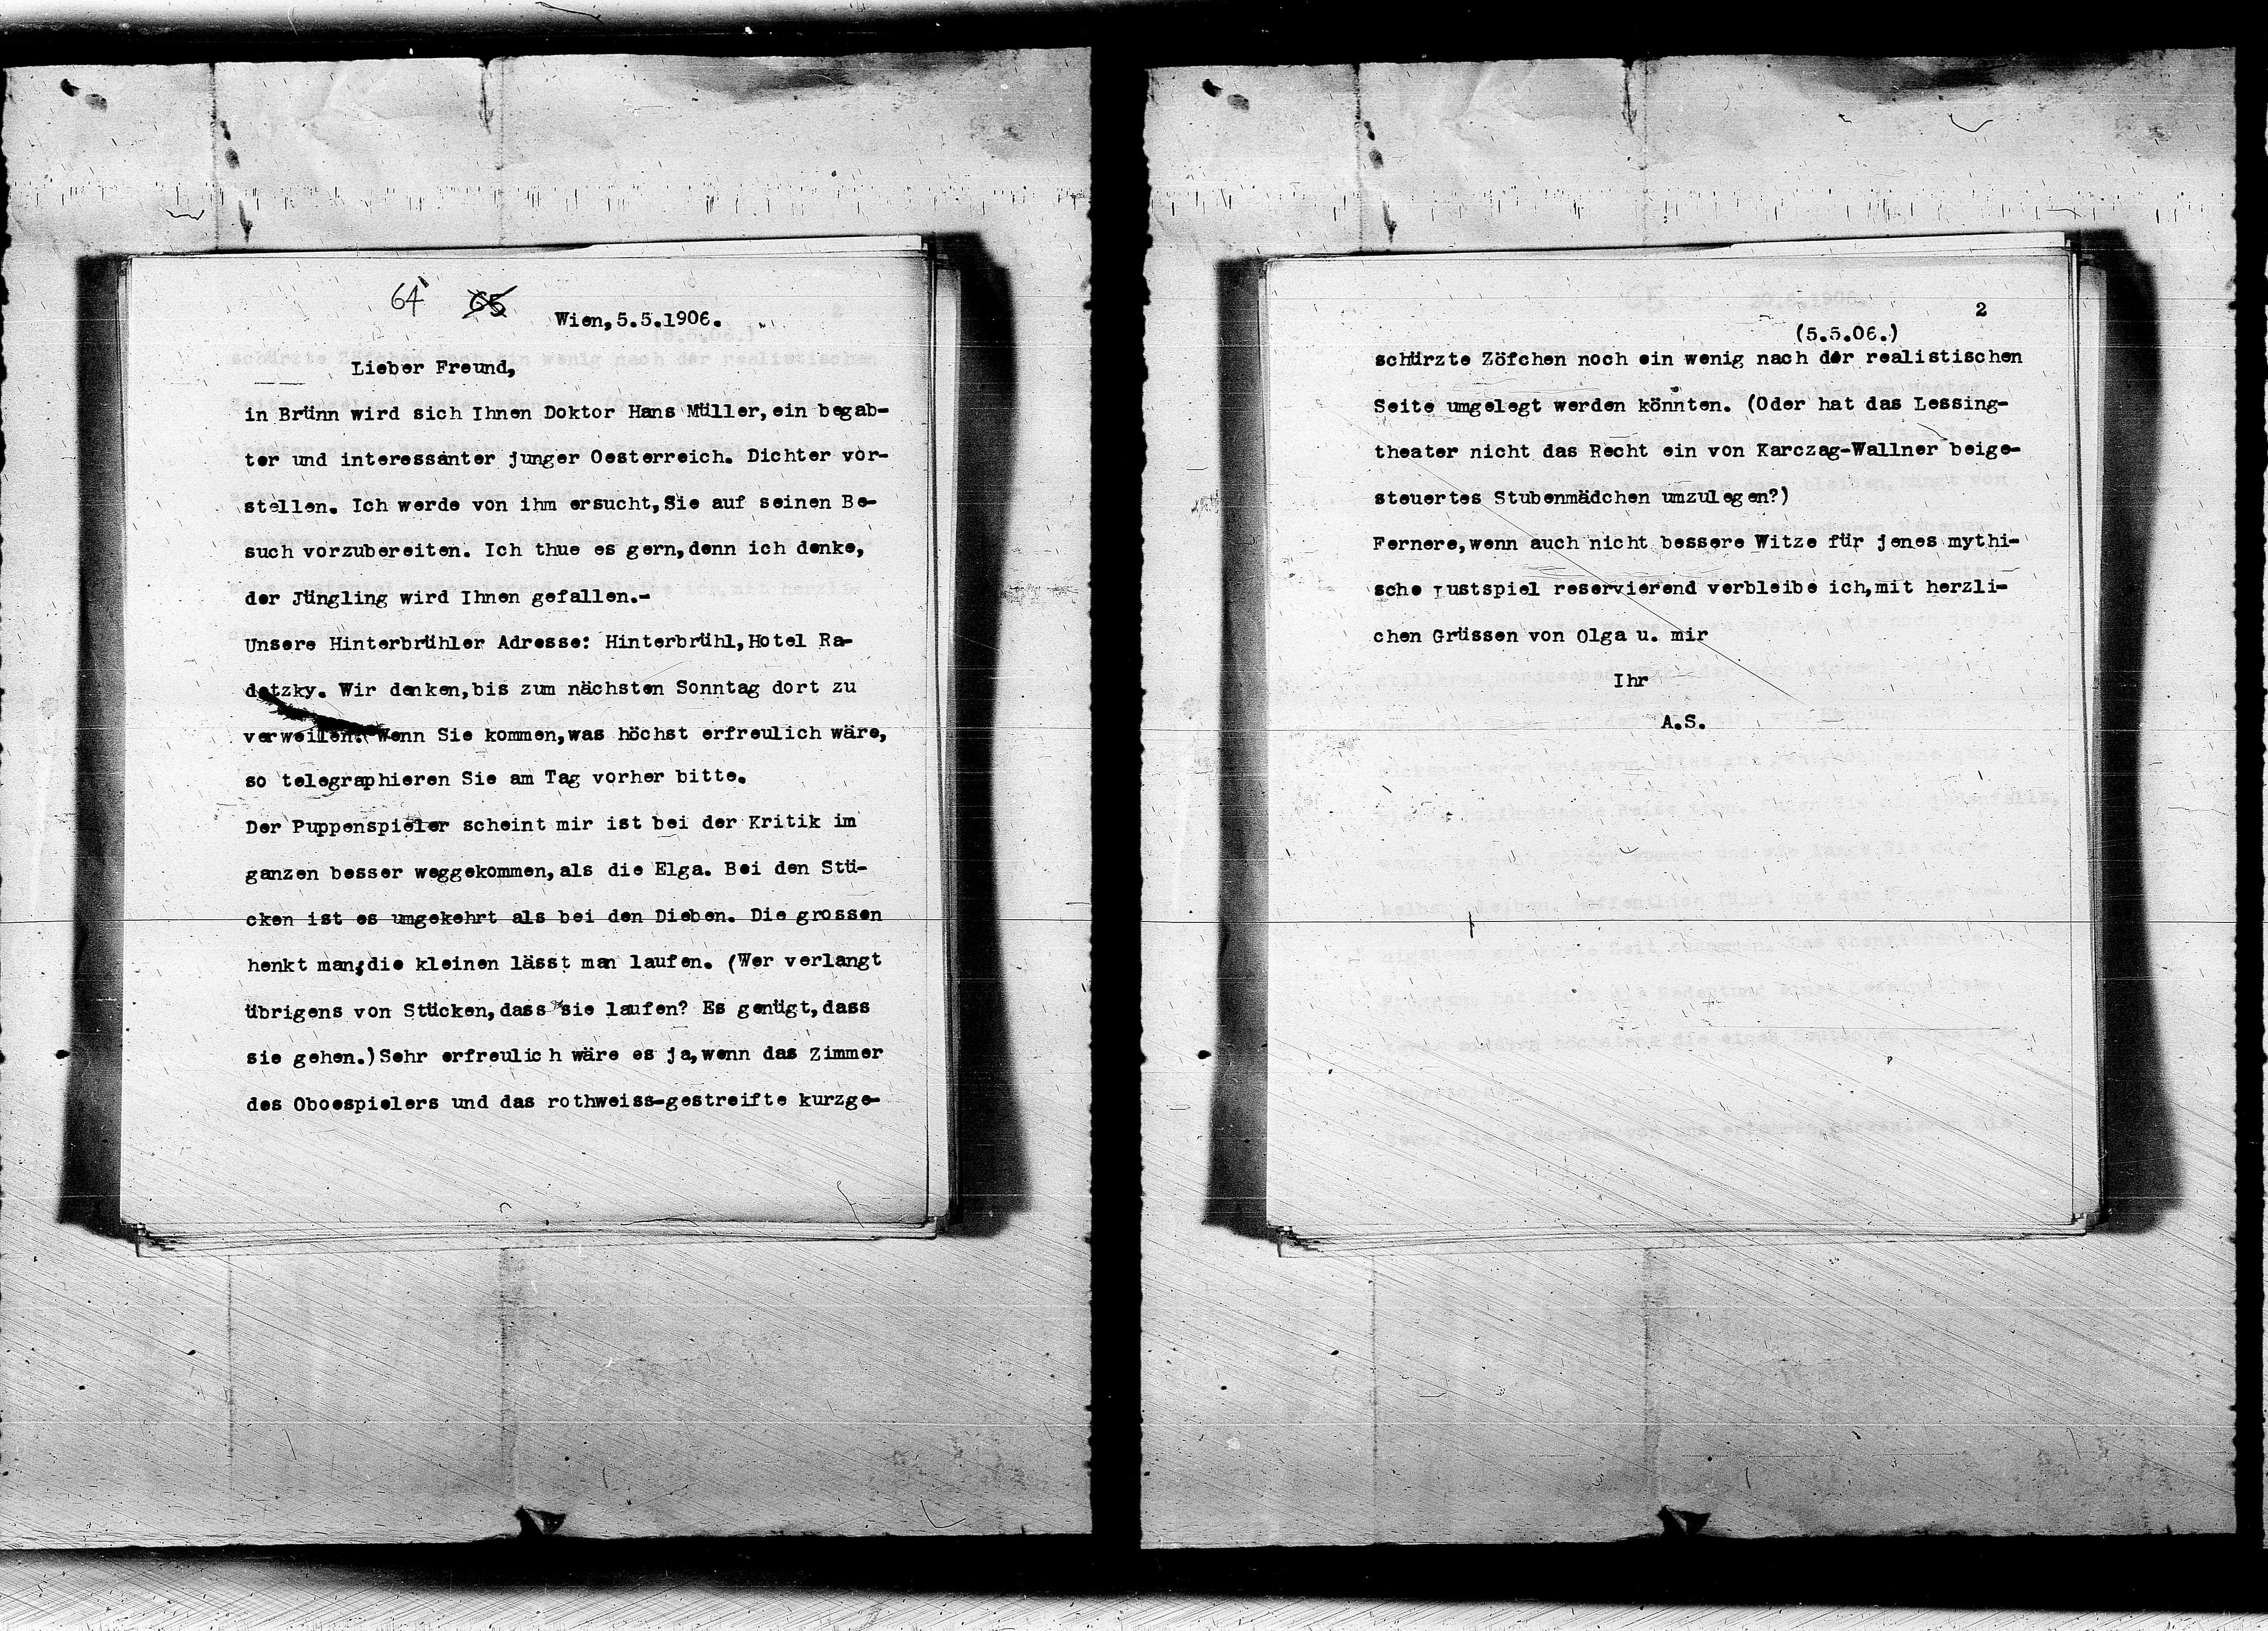 64 65
Wien,5.5.1906.
Lieber Freund,
in Brünn wird sich Ihnen Doktor Hans Müller,ein begab-
ter und interessanter junger Oesterreich. Dichter vor-
stellen. Ich werde von ihm ersucht,Sie auf seinen Be-
such vorzubereiten. Ich thue es gern,denn ich denke,
der Jüngling wird Ihnen gefallen.-
Unsere Hinterbrühler Adresse: Hinterbrühl,Hotel Ra-
detzky. Wir denken,bis zum nächsten Sonntag dort zu
verweilen. Wenn Sie kommen,was höchst erfreulich wäre,
so telegraphieren Sie am Tag vorher bitte.
Der Puppenspieler scheint mir ist bei der Kritik im
ganzen besser weggekommen,als die Elga. Bei den Stü-
cken ist es umgekehrt als bei den Dieben. Die grossen
henkt man;die kleinen lässt man laufen. (Wer verlangt
übrigens von Stücken,dass sie laufen? Es genügt,dass
sie gehen.)Sehr erfreulich wäre es ja,wenn das Zimmer
des Oboespielers und das rothweiss-gestreifte kurzge-
2
(5.5.06.)
schürzte Zöfchen noch ein wenig nach der realistischen
Seite umgelegt werden könnten. (Oder hat das Lessing-
theater nicht das Recht ein von Karczag-Wallner beige-
steuertes Stubenmädchen umzulegen?)
Fernere,wenn auch nicht bessere Witze für jenes mythi-
sche Lustspiel reservierend verbleibe ich,mit herzli-
chen Grüssen von Olga u. mir
Ihr
A.S.